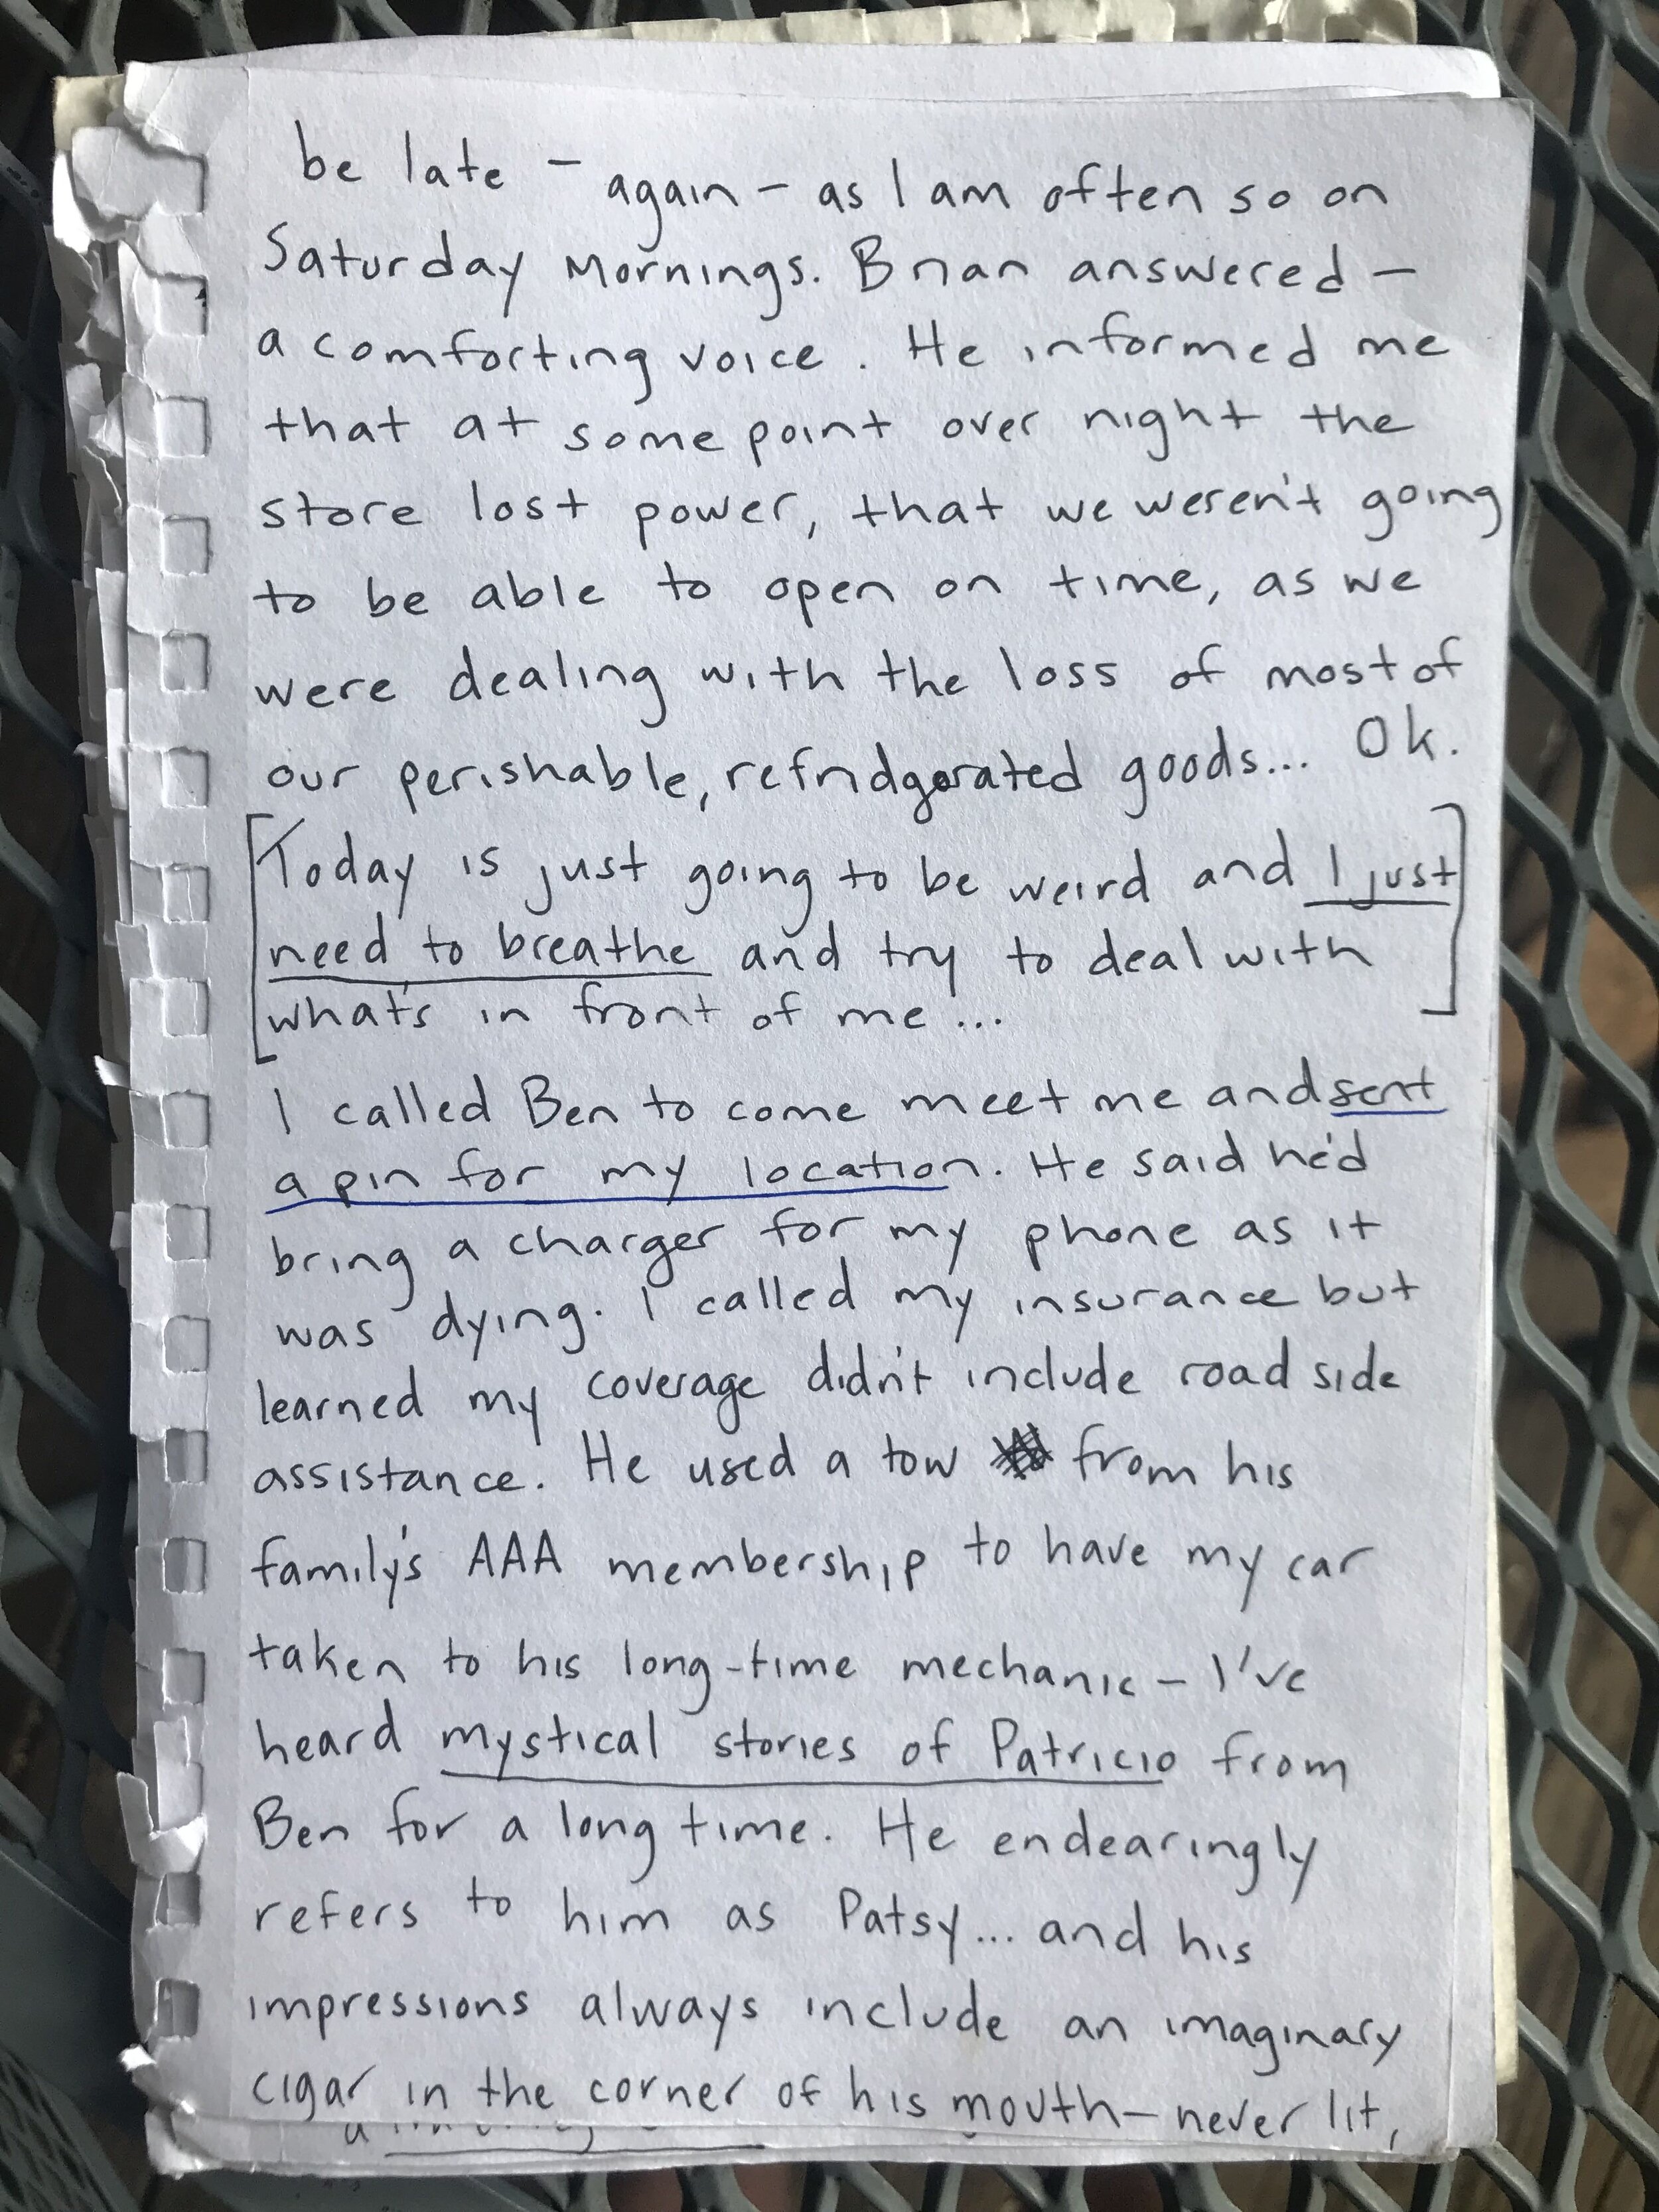 be late - again - as I am often so on
Saturday Mornings. Brian answered -
a comforting voice. He informed me
that at some point over night the
store lost power, that we weren't going
to be able to open on time, as we
were dealing with the loss of most of
our perishable, refridgerated goods... Ok.
[Today is just going to be weird and I just
need to breathe and try to deal with
what's in front of me...]
I called Ben to come meet me and sent
a pin for my location. He said he'd
bring a charger for my phone as it
was dying. I called my insurance but
learned my coverage didn't include road side
assistance. He used a tow from his
family's AAA membership to have my car
taken to his long-time mechanic - I've
heard mystical stories of Patricio from
Ben for a long time. He endearingly
refers to him as Patsy... and his
impressions always include an imaginary
cigar in the corner of his mouth - never lit,